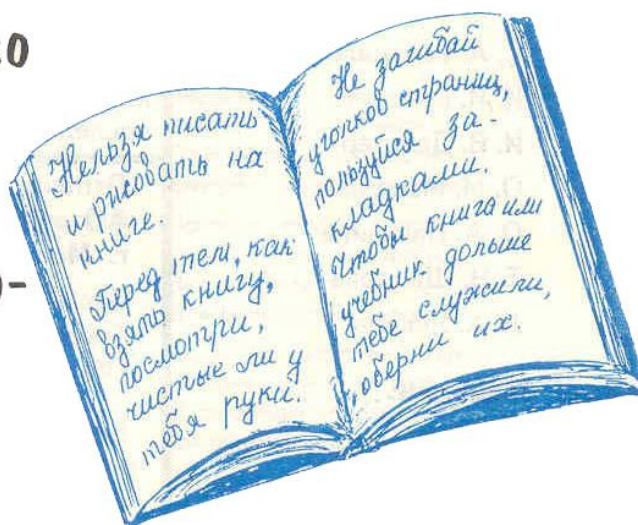 Нельзя писать
и рисовать на
книге.
Перед тем, как
взять книгу,
посмотри,
чистые ли у
тебя руки.
Не загибай
уголков страниц,
пользуйся за-
кладками.
Чтобы книга или
учебник дольше
тебе служили,
оберни их.